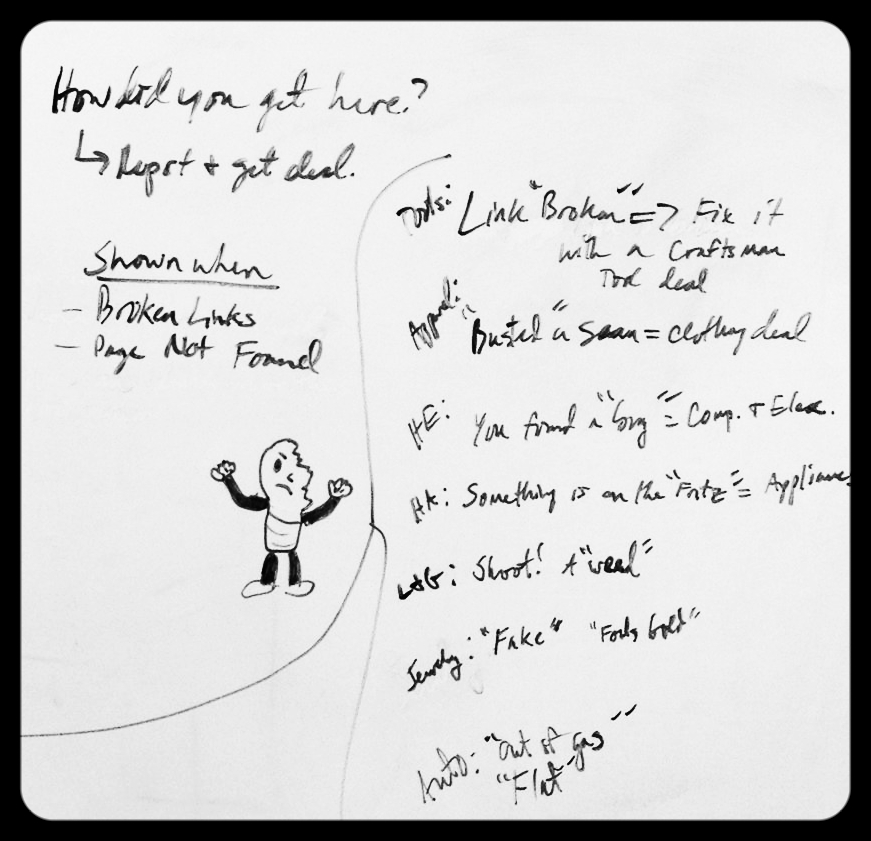 How did you get here?
↳ Report + get deal.
Shown when
- Broken Links
- Page Not Found
Tools: Link "Broken" => Fix it
with a Craftsman
Tool deal
Apparel: "Busted" a Seam = clothing deal
HE: You found a "bug" = Comp. + Elec.
HA: Something is on the "Fritz" = Appliance
L&G: Shoot! A "weed"
Jewelry: "Fake" "Fools Gold"
Auto: "out of gas"
"Flat"